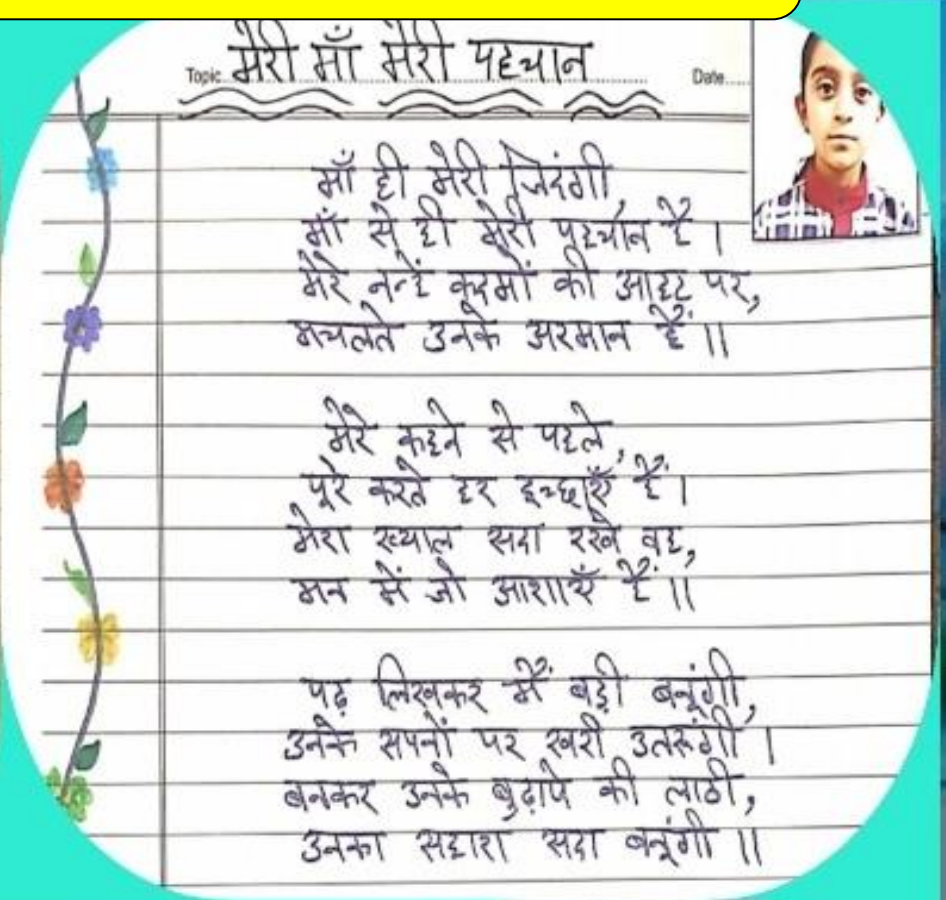 Topic मेरी माँ मेरी पहचान Date
माँ ही मेरी जिदंगी,
माँ से ही मेरी पहचान है।
मेरे नन्हें कदमों की आहट पर,
मचलते उनके अरमान हैं।।
मेरे कहने से पहले,
पूरे करते हर इच्छाएँ हैं।
मेरा ख्याल सदा रखे वह,
मन में जो आशाएँ हैं।।
पढ़ लिखकर मैं बड़ी बनूंगी,
उनके सपनों पर खरी उतरूंगी।
बनकर उनके बुढ़ापे की लाठी,
उनका सहारा सदा बनूंगी।।